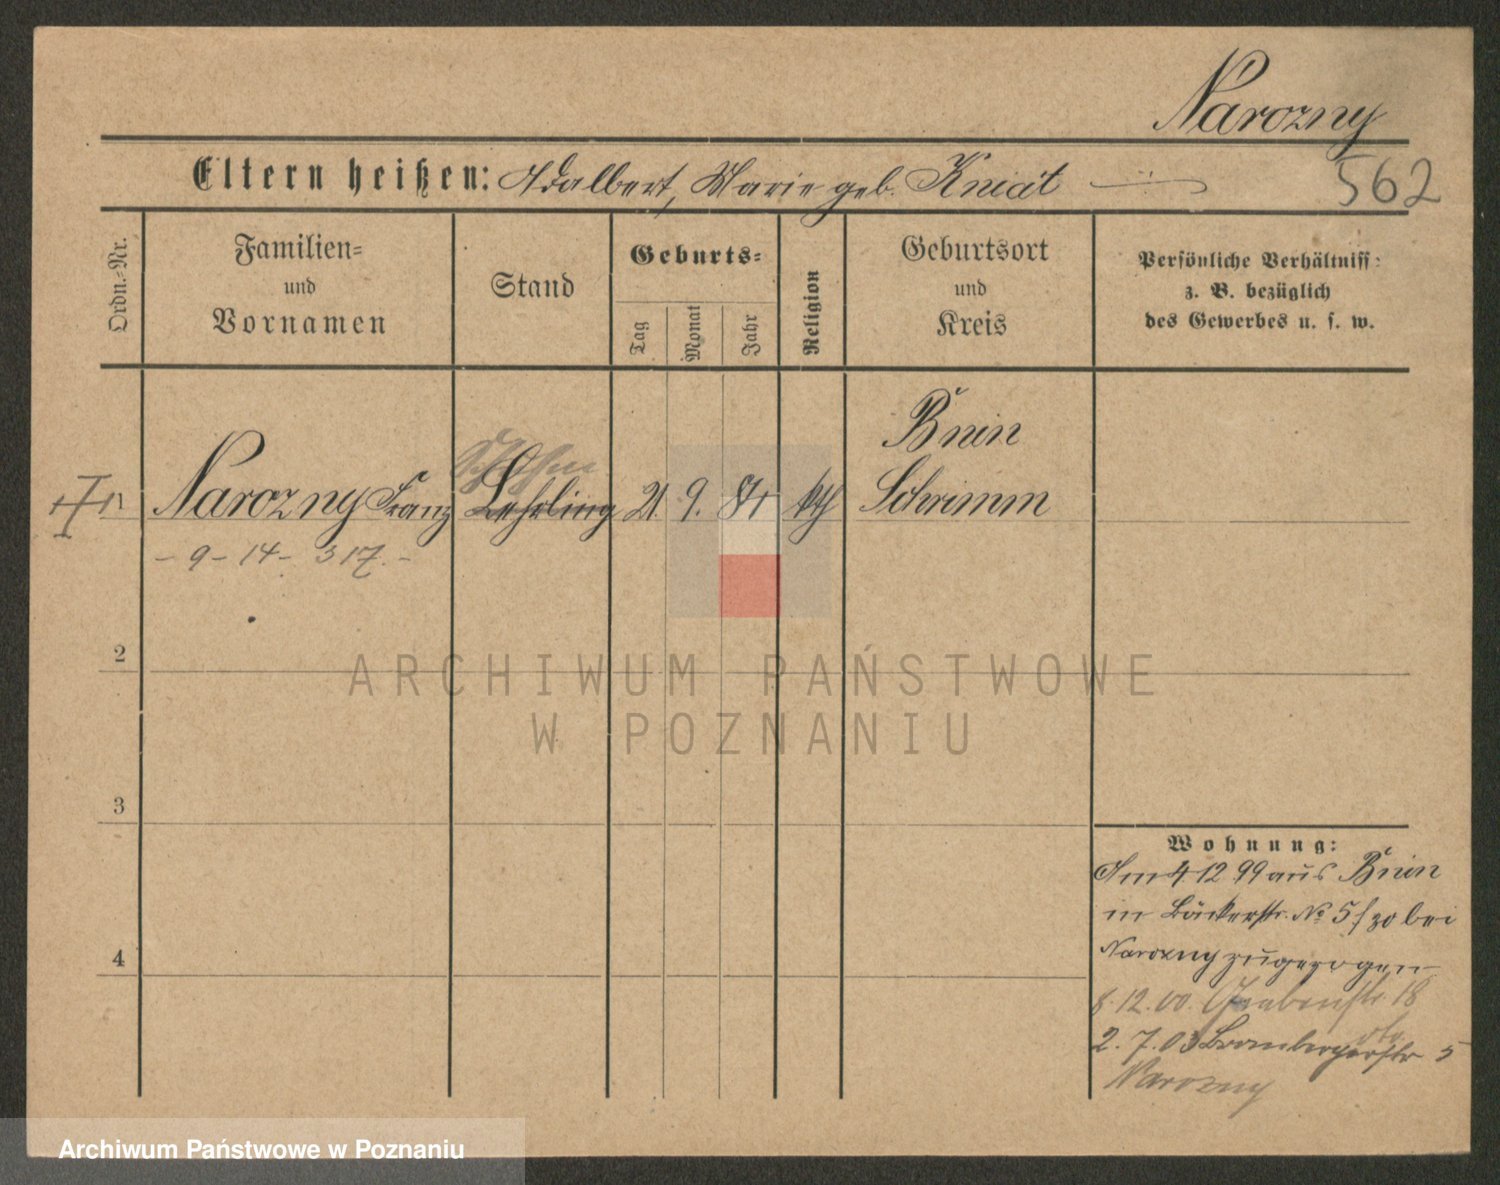 Narozny
562
Eltern heißen: Adalbert, Marie geb. Kniat
Ordn.-Nr.
Familien-
und
Vornamen
Stand
Geburts-
Tag
Monat
Jahr
Religion
Geburtsort
und
Kreis
Persönliche Verhältniss-
z. B. bezüglich
des Gewerbes u. s. w.
1 Narozny Franz Lehrling 21. 9. kth
Bnin
Schrimm
- 9 - 14 - 317. -
2
3
4
ARCHIWUM PAŃSTWOWE
W POZNANIU
Wohnung:
Am 4 12 99 aus Bnin
in Bäckerstr. No 5 bei
Narozny zugezogen
8. 12. 00. Grabenstr. 18
2. 7. 03 Brombergerstr 5
Narozny
Archiwum Państwowe w Poznaniu